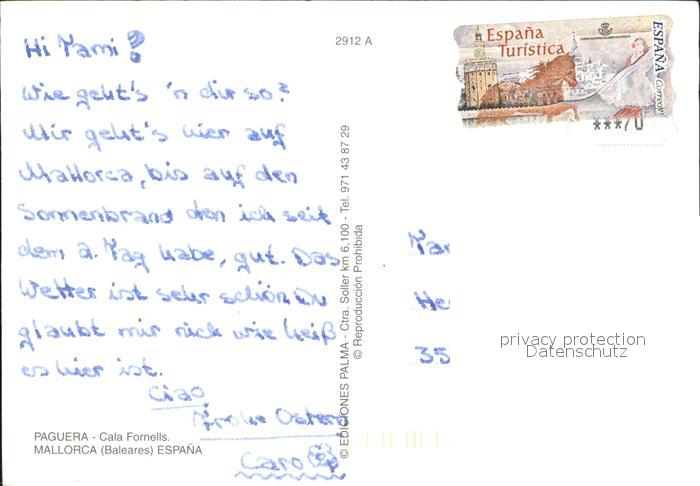 2912 A
España
Turística
ESPAÑA
Correos
***70
Hi Tami!
Wie geht's 'n dir so?
Mir geht's hier auf
Mallorca, bis auf den
Sonnenbrand den ich seit
dem 2. Tag habe, gut. Das
Wetter ist sehr schön. Du
glaubt mir nich wie heiß
es hier ist.
Ciao
Frohe Ostern
Caro
PAGUERA - Cala Fornells.
MALLORCA (Baleares) ESPAÑA
© EDICIONES PALMA - Ctra. Soller km 6,100 - Tel. 971 43 87 29
© Reproducción Prohibida
He
35
privacy protection
Datenschutz